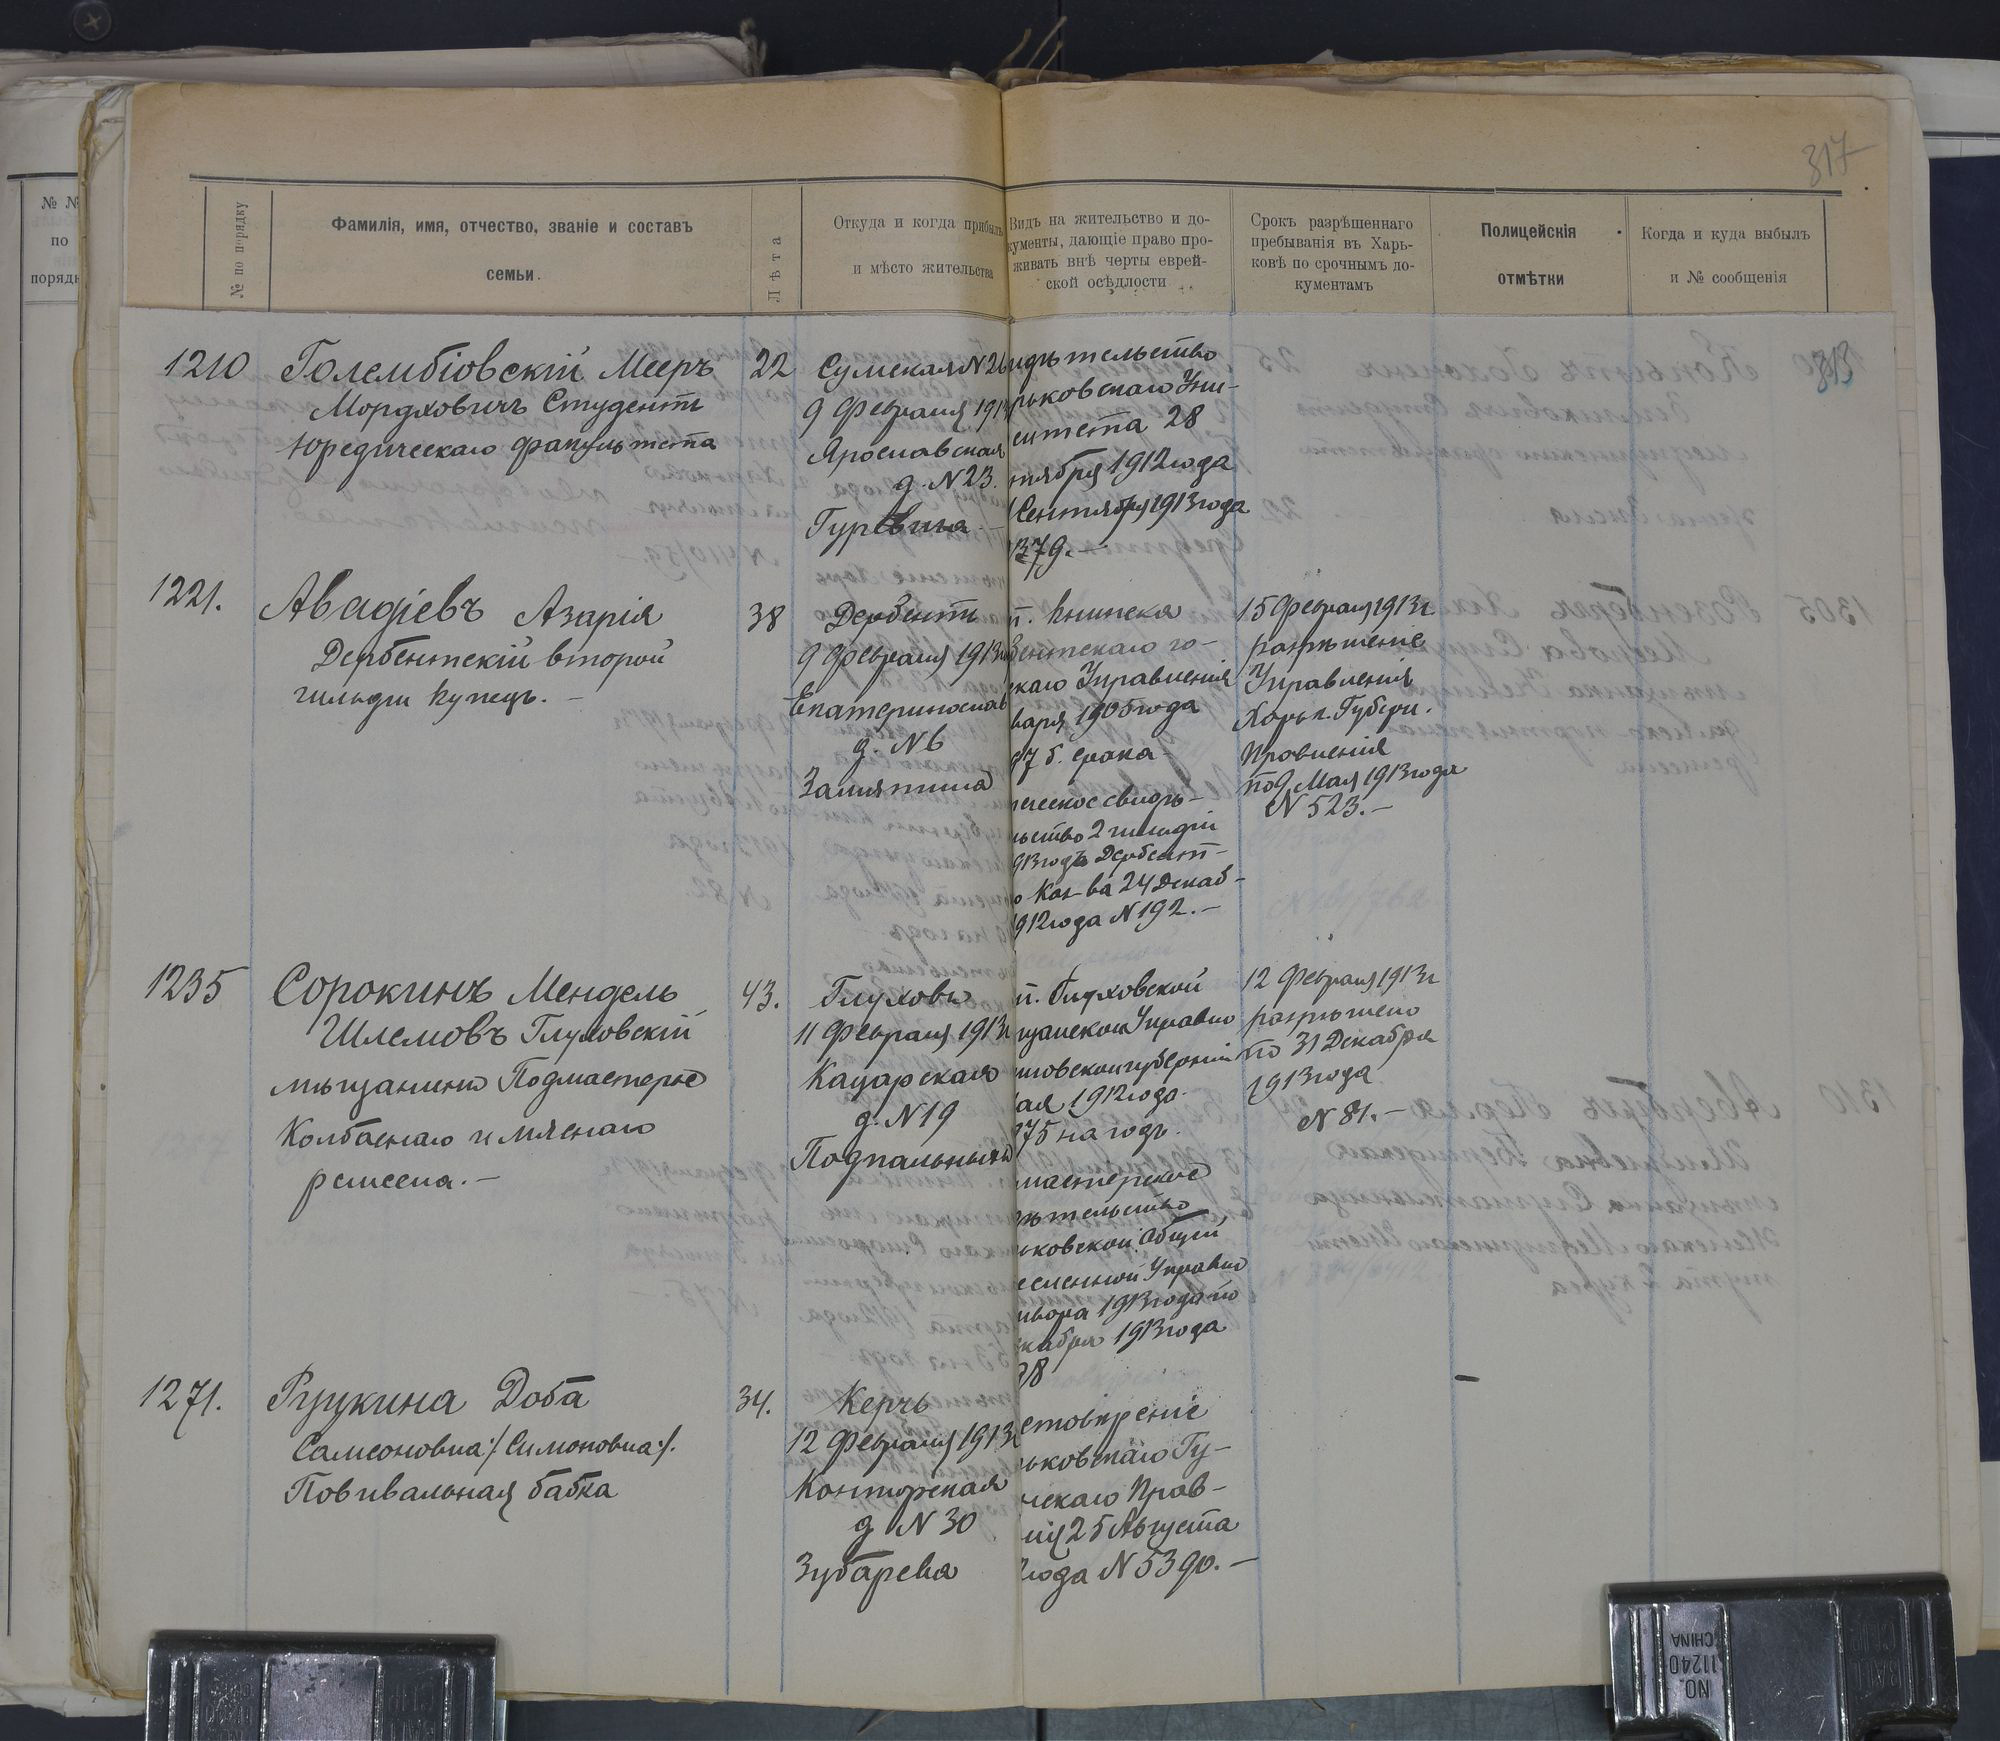 317
№ №
по
порядк
№ по порядку
Фамилія, имя, отчество, званіе и составъ
семьи.
Лѣта
Откуда и когда прибылъ
и мѣсто жительства
Видъ на жительство и до-
кументы, дающіе право про-
живать внѣ черты еврей-
ской осѣдлости
Срокъ разрѣшеннаго
пребыванія въ Харь-
ковѣ по срочнымъ до-
кументамъ
Полицейскія
отмѣтки
Когда и куда выбылъ
и № сообщенія
313
1210
Голембіовскій Мееръ
Мордховичъ Студентъ
Юредическаго факультета
22
Сумская N 26
9 Февраля 1913
Ярославская
д. N 23.
Гуревича
идѣтельство
рьковскаго Уни-
ситета 28
нтября 1912 года
Сентября 1913 года
1379.-
1221.
Авадіевъ Азарія
Дербентскій второй
гильдіи купецъ.-
38
Дербентъ
9 Февраля 1913г
Екатеринослав
д. N 6
Замятина
п. книжка
бентскаго го-
скаго Управленія
варя 1905 года
97 б. срока-
печеское свидѣ-
льство 2 гильдіи
913 годъ Дербент-
о Каз-ва 24 Декаб-
912 года N 192.-
15 Февраля 1913г
разрѣшеніе
Управленія
Харьк. Губерн.
Правленія
по 9 Мая 1913 года
N 523.-
1235
Сорокинъ Мендель
Шлемовъ Глуховскій
мѣщанинъ Подмастерье
Колбаснаго и мяснаго
ремесла.-
43.
Глуховъ
11 Февраля 1913г
Кацарская
д. N 19
Подпальный
п. Глуховской
щанской Управы
иговской губерніи
ая 1912 года
975 на годъ.
мастерское
ѣтельство
ьковской Общей
есленной Управы
нвара 1913 года по
екабря 1913 года
38
12 Февраля 1913г
разрѣшено
по 31 Декабря
1913 года
N 81.-
1271.
Рцукина Доба
Самсоновна /Симоновна/.
Повивальная бабка
34.
Керчь
12 Февраля 1913г
Конторская
д N 30
Зубарева
стовѣреніе
ьковскаго Гу-
нскаго Прав-
нія 25 Августа
года N 5390.-
NO.
11240
CHINA